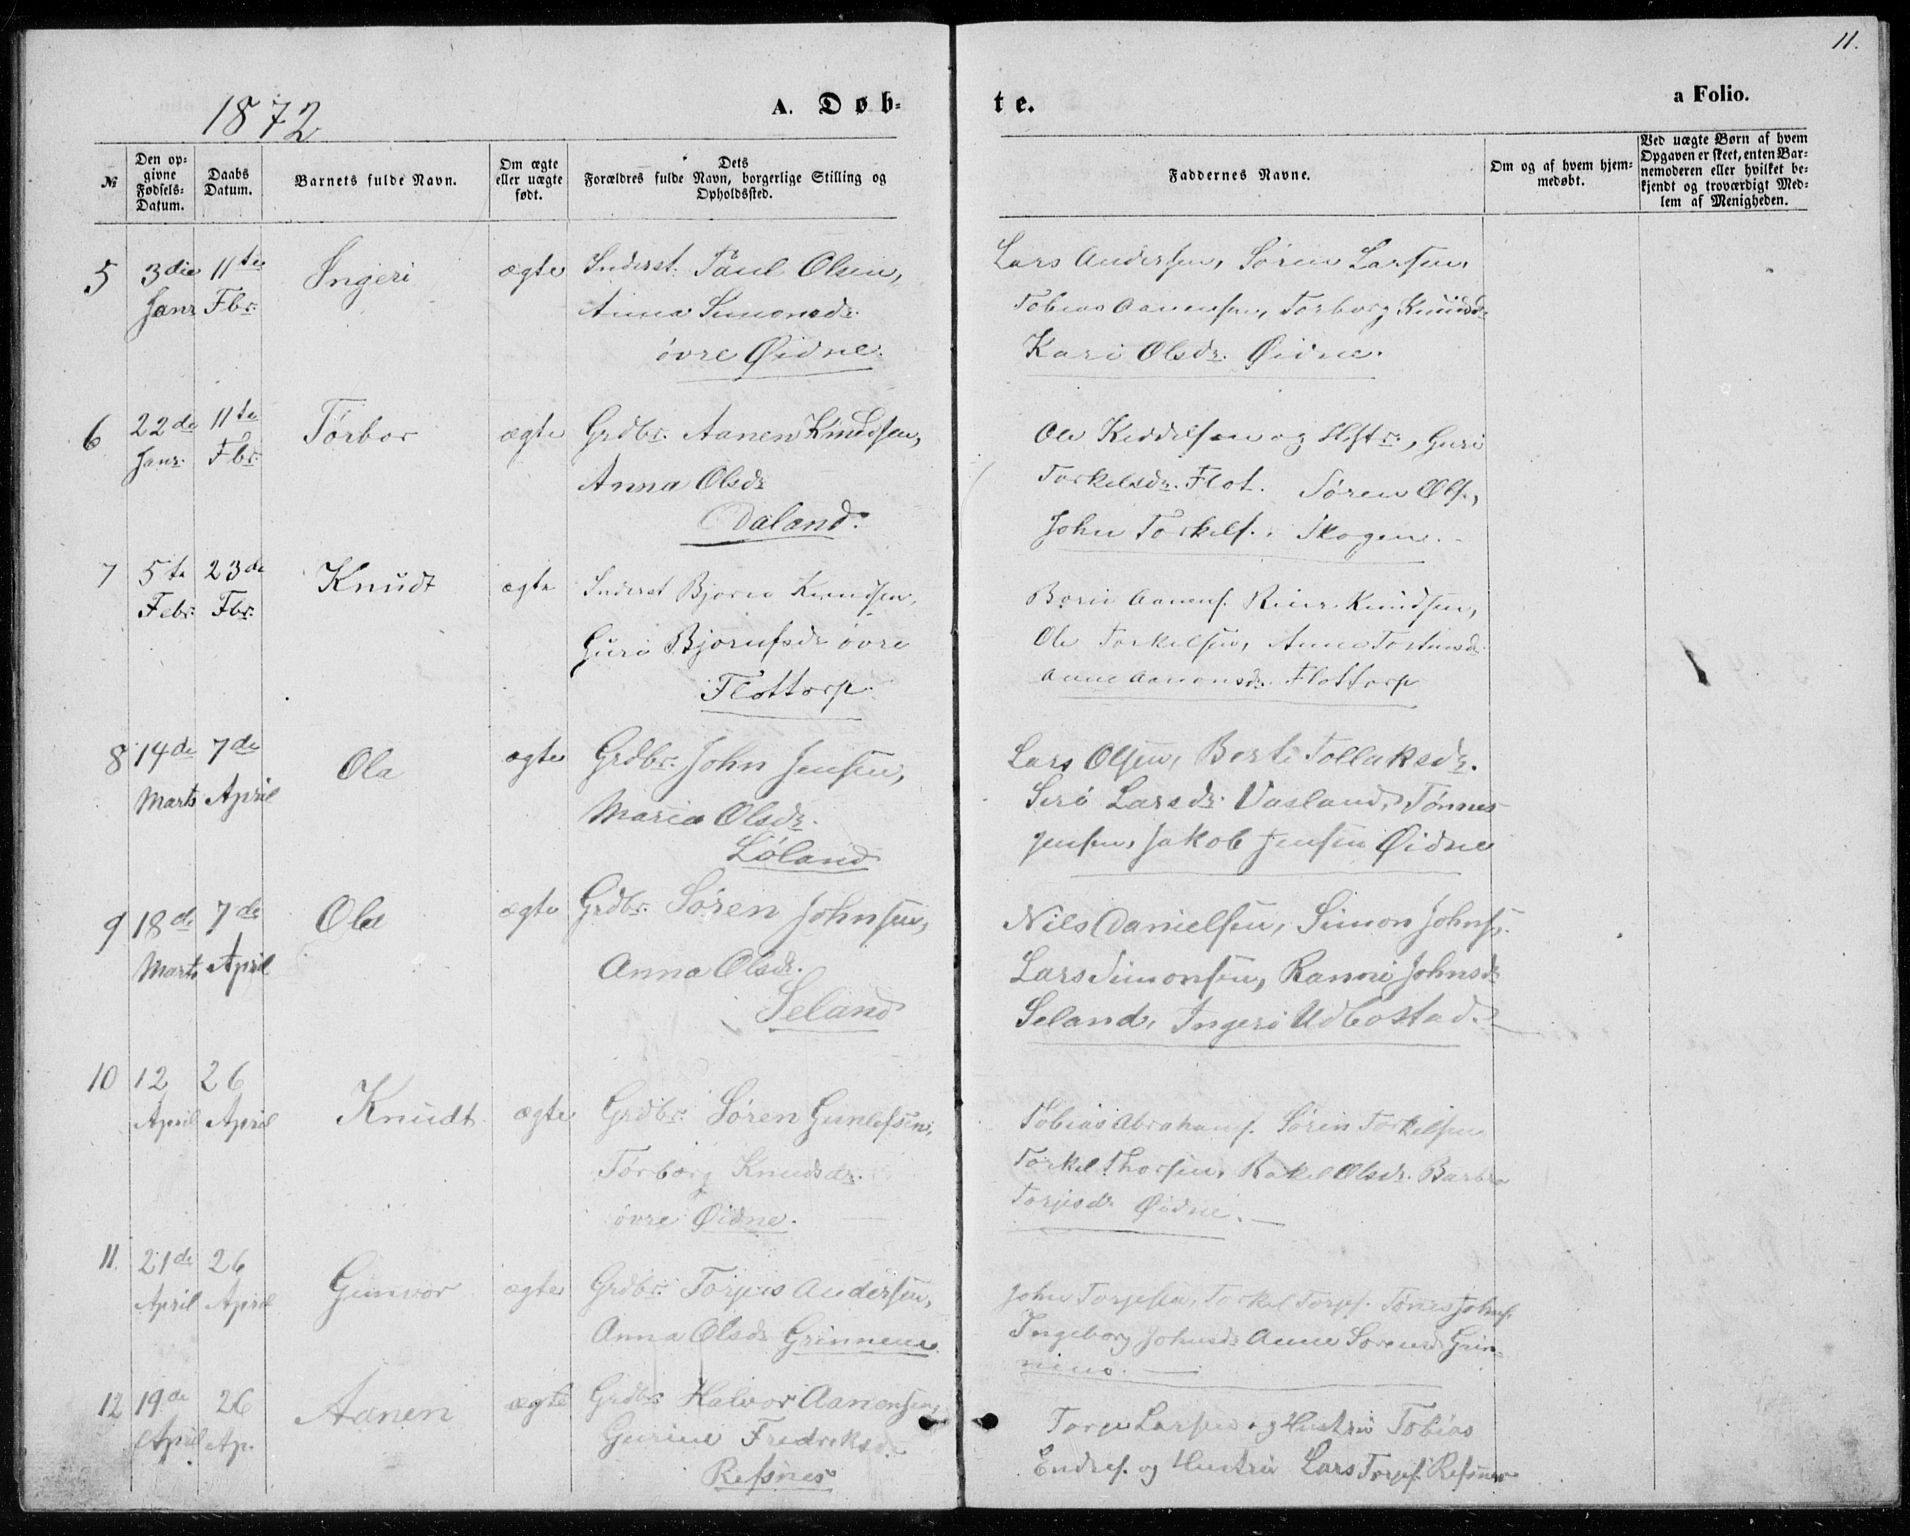 11.
1872
A. Døb-
te.
a Folio.
№
Den op-
givne
Fødsels-
Datum.
Daabs
Datum.
Barnets fulde Navn.
Om ægte
eller uægte
født.
Dets
Forældres fulde Navn, borgerlige Stilling og
Opholdssted.
Faddernes Navne.
Om og af hvem hjem-
medøbt.
Ved uægte Børn af hvem
Opgaven er skeet, enten Bar-
nemoderen eller hvilket be-
kjendt og troværdigt Med-
lem af Menigheden.
5 3die 11te Ingeri ægte Inderst. Paul Olsen,
Janr Fbr. Anna Simonsdr.
øvre Øidne.
Lars Andersen, Søren Larsen,
Tobias Aanensen, Torborg Knudsdr
Kari Olsdr. Øidne.
6 22de 11te Tørbor ægte Grdbr. Aanen Knudsen,
Janr. Fbr. Anna Olsdr
Daland.
Ole Keddelsen og Hstr., Guri
Torkelsdr. Flot. Søren Ols.,
John Torkels. Skogen.
7 5te 23de Knudt ægte Inderst Bjorn Knudsen,
Febr. Fbr. Guro Bjornfsdr øvre
Flottorp.
Aanens. Knudsen,
Ole Torkelsen, Anne
Anne Aanonsdr. Flottorp
8 14de 7de Ola ægte Grdbr. John Jensen,
Marts April Maria Olsdr.
Løland
Lars Olsen, Berte Tollaksdr.
Siri Larsdr. Vasland, Tønnes
Jensen, Jakob Jensen Øidne
9 18de 7de Ola ægte Grdbr. Søren Johnsen,
Marts April Anna Olsdr.
Seland
Nils Danielsen, Simon Johns.
Lars Simonsen, Ranni Johnsdr
Seland, Ingeri Udbostad.
10 12 26 Knudt ægte Grdbr. Søren Gunlefsen,
April April Torborg Knudsdr.
øvre Øidne.
Tobias Abrahams. Søren Torkelsen
Torkel Thorsen, Rakel Olsdr. Barbro
Torjusdr Øidne.
11. 21de 26 Gunvor ægte Grdbr. Torjus Andersen,
April April Anna Olsdr Grinnene.
John Torjesen, Torkel Torjs. Tønes Johns.
Ingeborg Johnsdr Anne Sørensdr Grin-
nene.
12 19de 26 Aanen ægte Grdbr. Halvor Aanonsen,
April Ap. Gurine Fredriksdr
Refsnes
Torje Larsen og Hustru Tobias
Endres. og Hustru Lars Torjes. Refsnes